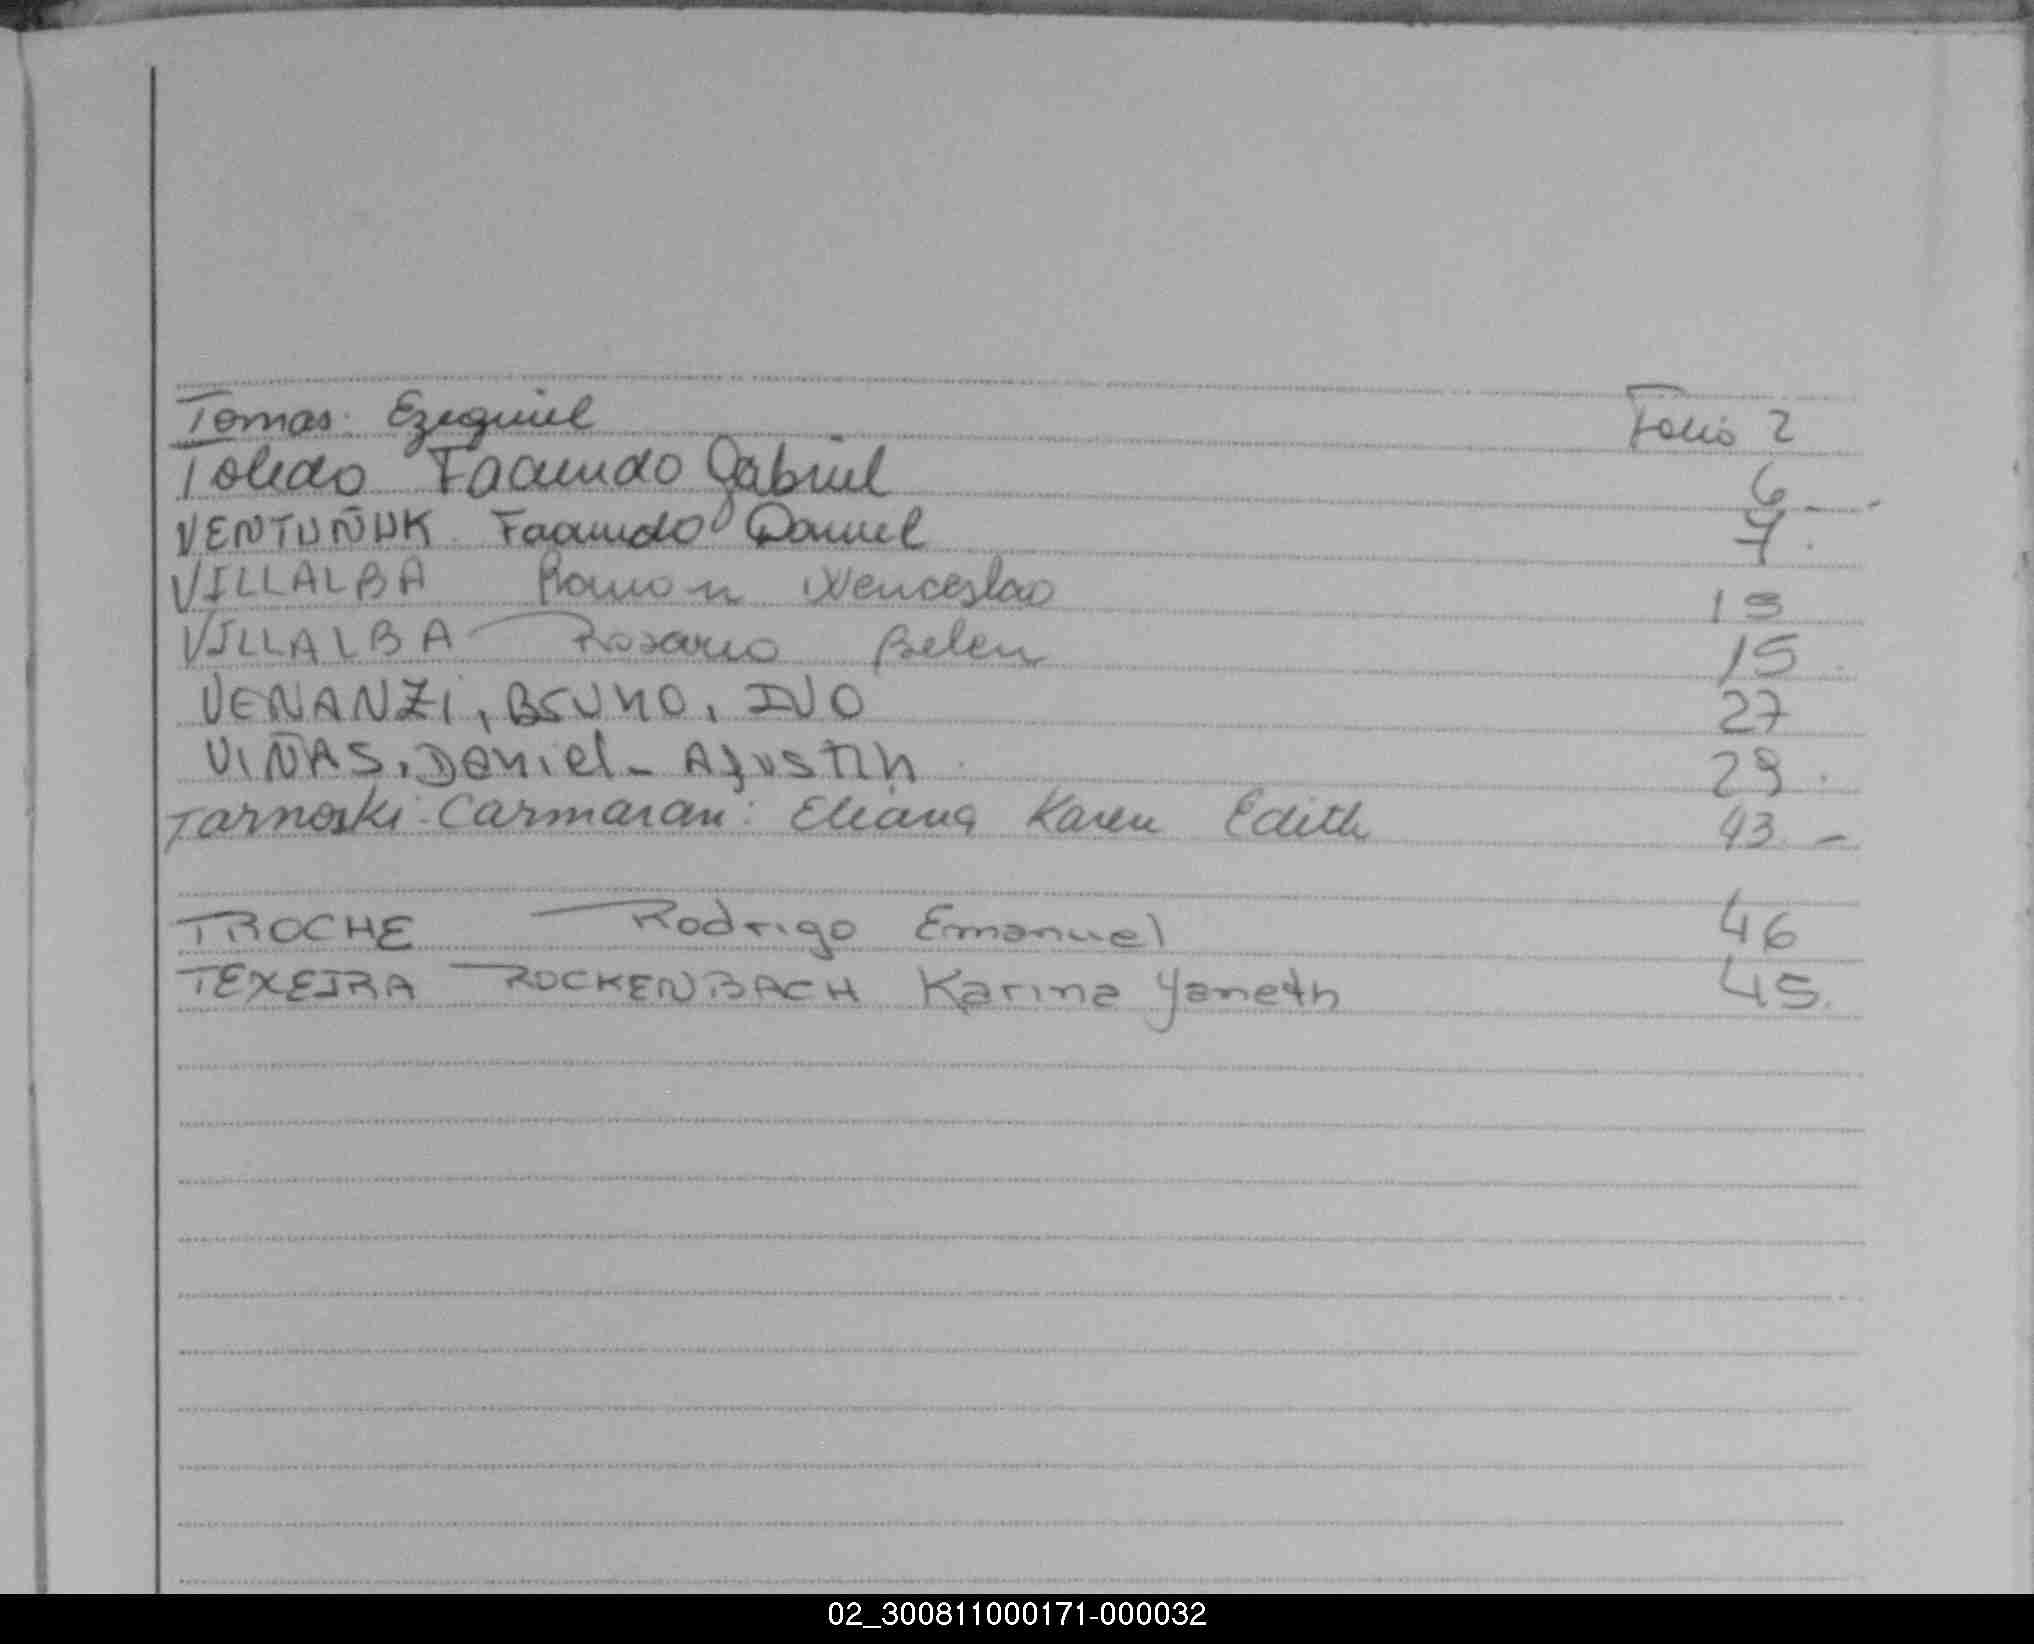 Tomas. Ezequiel Folio 2
Toledo Facundo Gabriel 6
VENTUÑUK Facundo Daniel 7
VILLALBA Ramon Wenceslao 13
VILLALBA Rosario Belen 15
VENANZi, Bruno, IVO 27
VIÑAS, Daniel - Agustin 29
Tarnoski - Carmaran: Eliana Karen Edith 43 -
TROCHE Rodrigo Emanuel 46
TEXEIRA ROCKENBACH Karina Yaneth 45
02_300811000171-000032